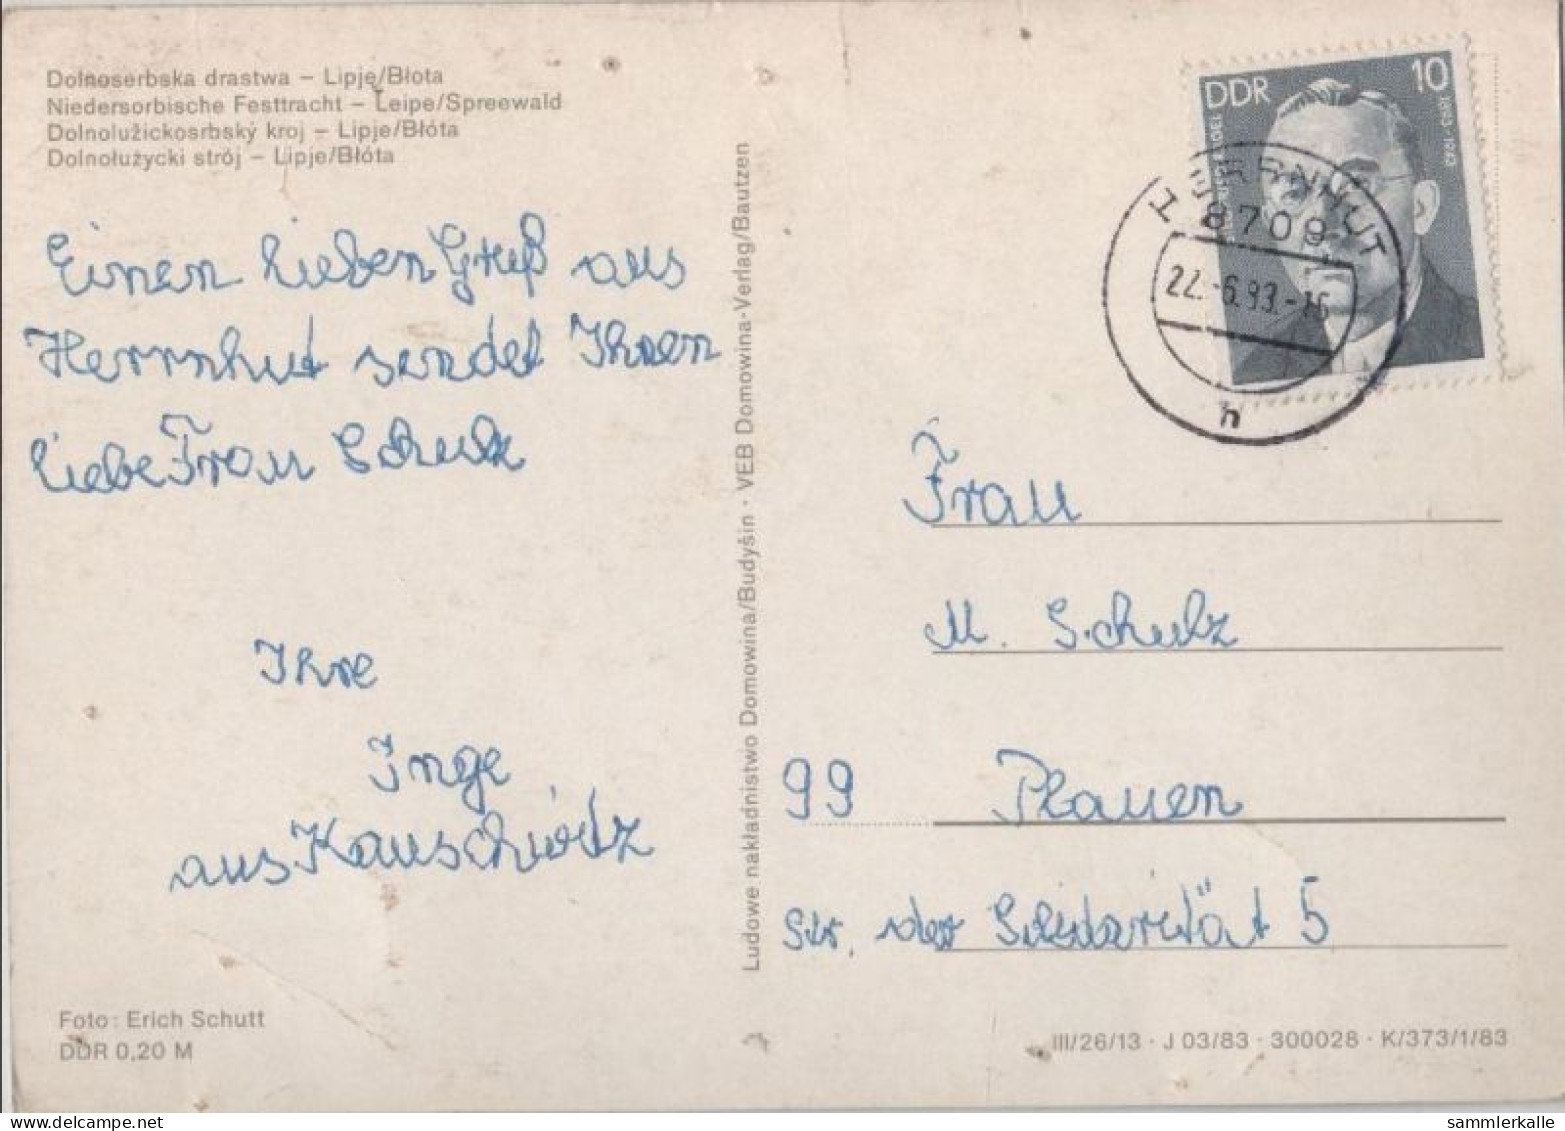 Dolnoserbska drastwa – Lipje/Błota
Niedersorbische Festtracht – Leipe/Spreewald
Dolnolužickosrbský kroj – Lipje/Błóta
Dolnołużycki strój – Lipje/Błóta
Einen lieben Gruß aus
Herrnhut sendet Ihnen
liebe Frau Schulz
Ihre
Inge
aus Kauschwitz
Foto: Erich Schutt
DDR 0,20 M
Ludowe nakładnistwo Domowina/Budyšin · VEB Domowina-Verlag/Bautzen
DDR 10
HERRNHUT
8709
22.-6.83.-16
h
Frau
M. Schulz
99 Plauen
Str. der Solidarität 5
III/26/13 · J 03/83 · 300028 · K/373/1/83
sammlerkalle